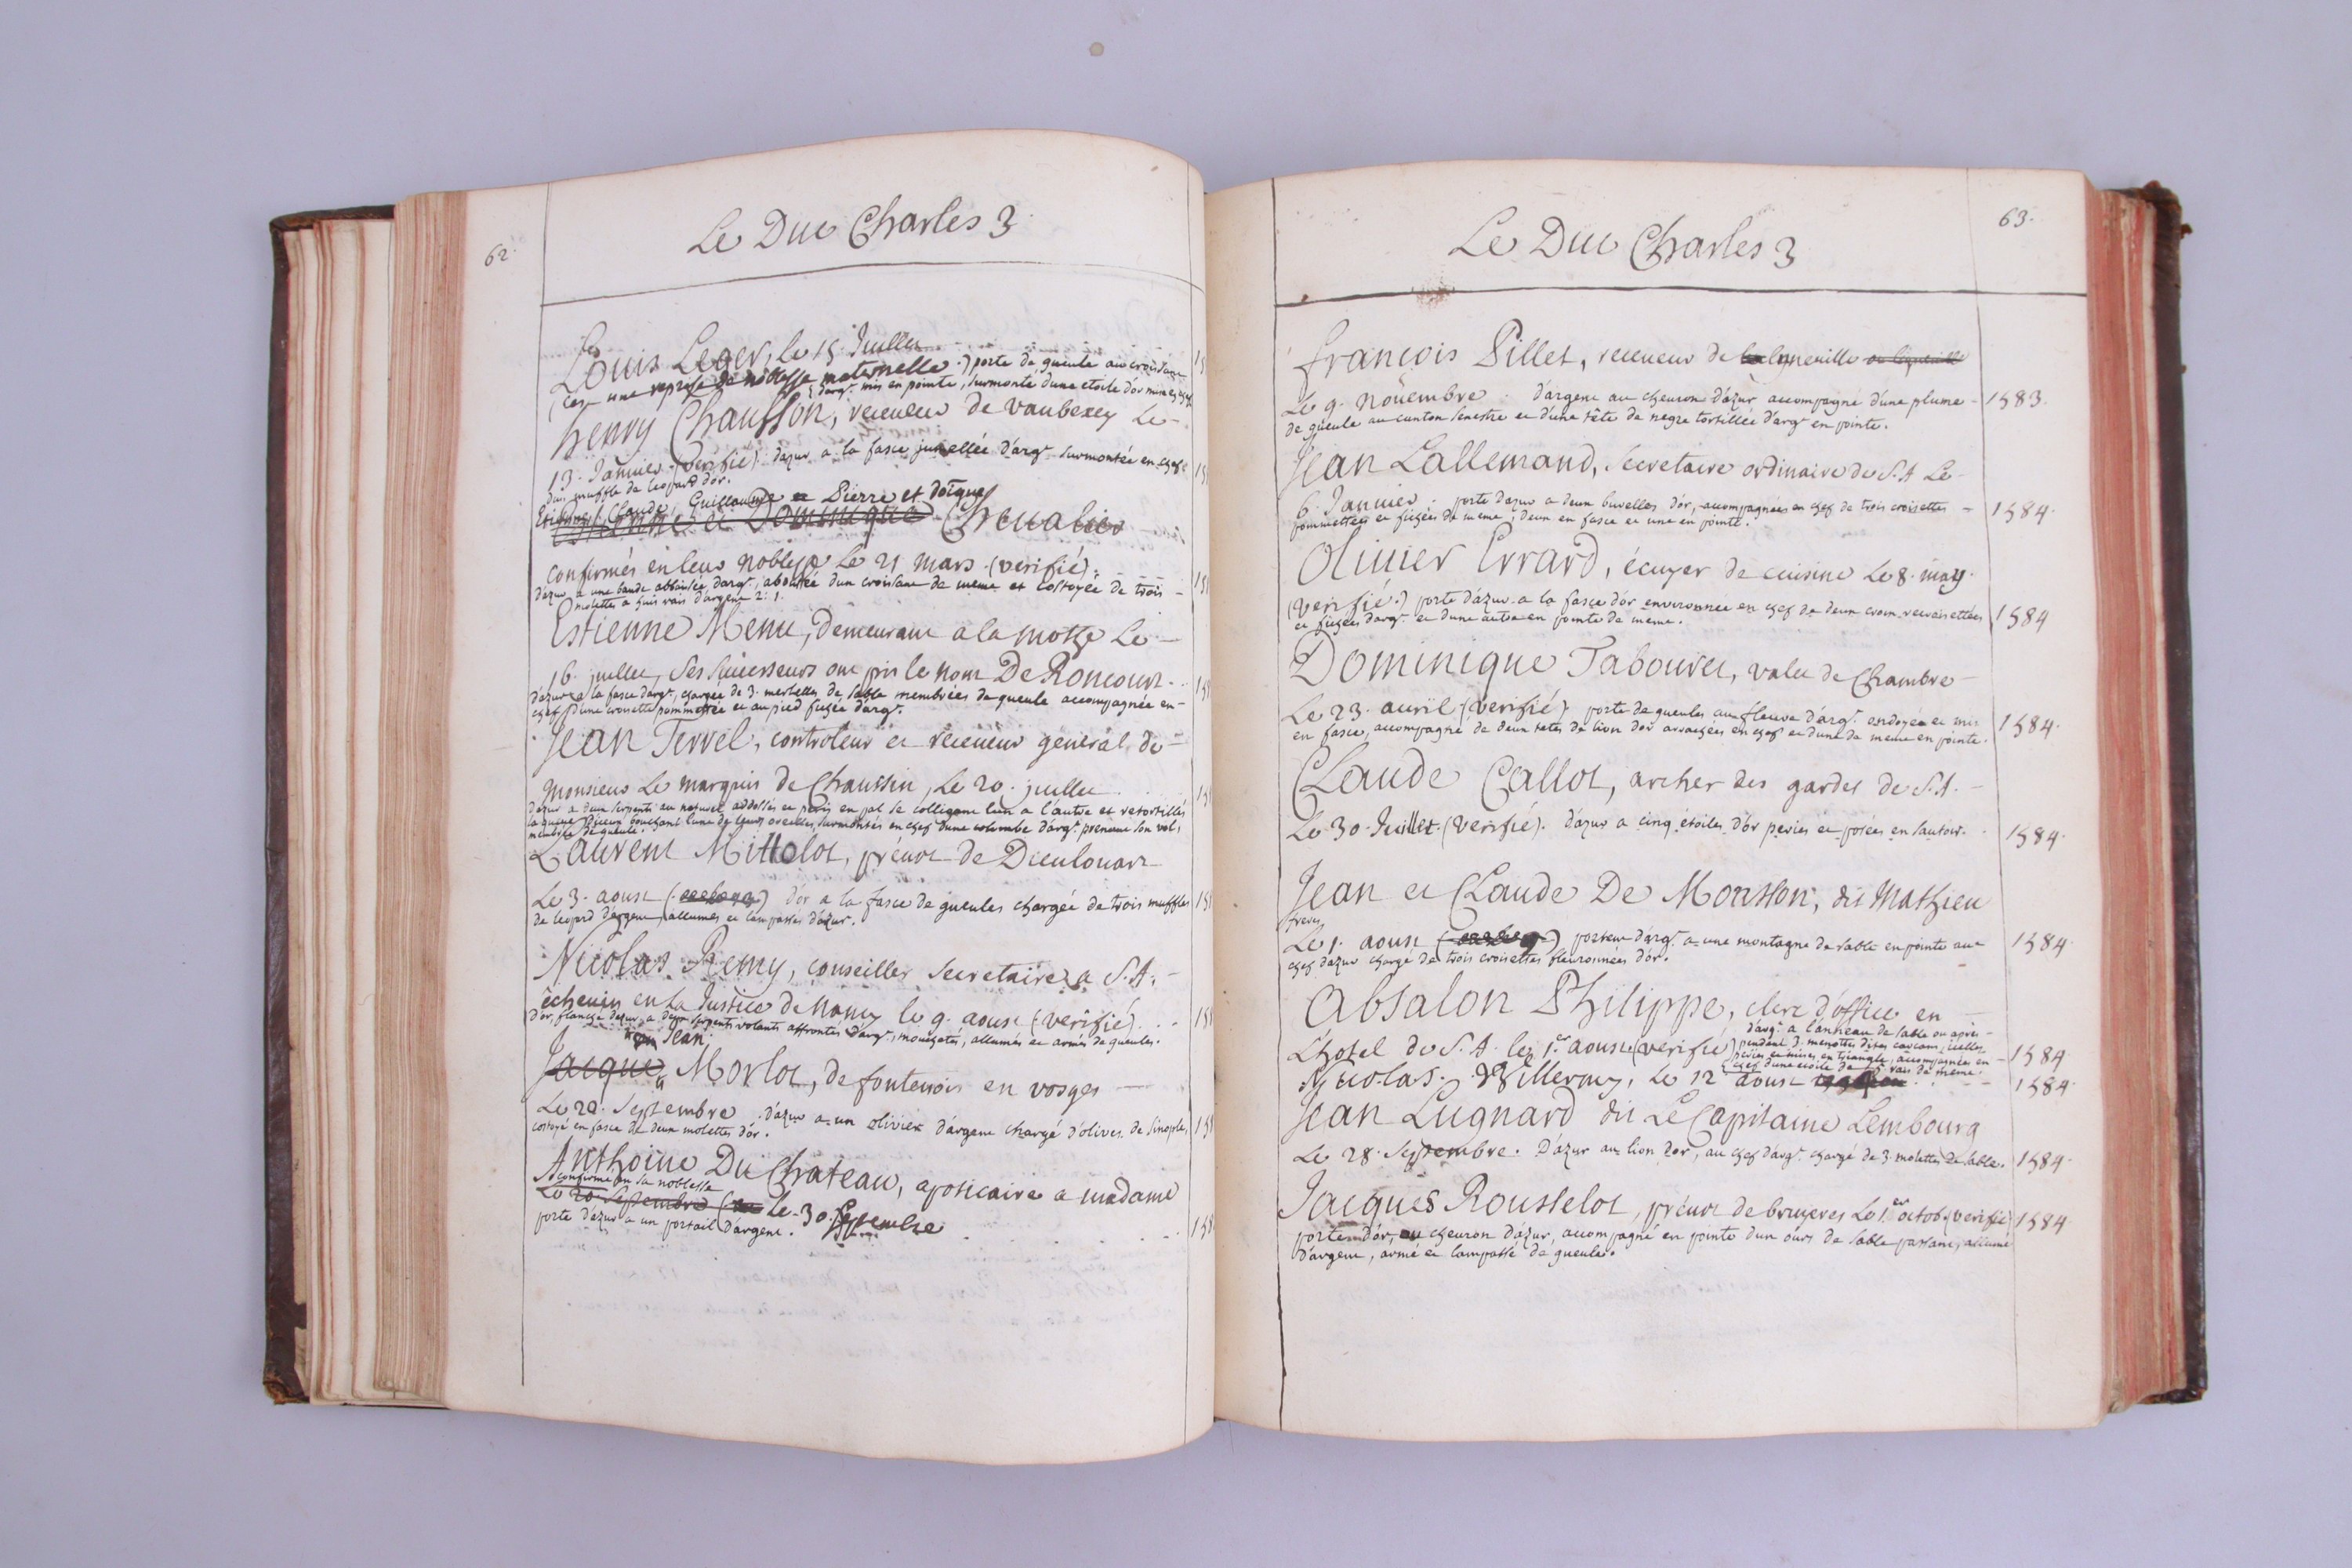 62.
Le Duc Charles 3
Louis Leger, le 15 Juillet
(c'est une reprise de noblesse maternelle.) porte de gueule au croissant
d'arg.t mis en pointe, surmonté d'une etoile d'or
henry Chausson, receveur de vaubexey Le
13. Janvier. (verifié). d'azur a la fasce jumellée d'arg.t surmontée en chef
d'un muffle de leopard d'or.
Etienne, Claude, Guillaume et Pierre et doïque
et Dominique Chevalier
confirmés en leur noblesse Le 21 mars. (verifié).
d'azur a une bande abbaissée d'arg.t, aboutée d'un croissant de meme et costoyée de trois
molettes a huis rais d'argent 2. 1.
Estienne Menu, demeurant a la mothe Le
16. juillet, Ses successeurs ont pris le nom De Roncourt.
d'azur a la fasce d'arg.t, chargée de 3. merlettes de sable membrées de gueule accompagnée en
chef d'une croisette pommettée et au pied fichée d'arg.t
Jean Terrel, controleur et receveur general de
Monsieur Le marquis de Chaussin, Le 20. juillet
d'azur a deux serpents au naturel addossés et peris en pal se colligeant l'un a l'autre et retortillés
la queue d'iceux bouchant l'une de leurs oreilles, surmontés en chef d'une colombe d'arg.t prenant son vol,
membrée de gueule.
Laurent Millolot, prévot de Dieulouart
Le 3. aoust d'or a la fasce de gueules chargée de trois muffles
de leopard d'argent, allumés et lampassés d'azur.
Nicolas Remy, conseiller secretaire a S. A.
échevin en la Justice de Nancy le 9. aoust (verifié)
d'or, flanché d'azur, a deux serpents volants affrontés d'arg.t, mouchetés, allumés et armés de gueules.
Jean
Jacque Morlot, de fontenois en vosges
Le 20. Septembre d'azur a un olivier d'argent chargé d'olives de sinople,
costoyé en fasce de deux molettes d'or.
Anthoine Du Chateau, aposicaire a madame
confirmé en sa noblesse
Le 20 Septembre Le 30. Septembre
porte d'azur a un portail d'argent.
63.
Le Duc Charles 3
françois Pillet, receveur de
Le 9. Novembre. d'argent au cheuron d'azur accompagné d'une plume 1583.
de gueule au canton senestre et d'une tête de negre tortillée d'arg.t en pointe.
Jean Lallemand, Secretaire ordinaire de S. A Le
6. Janvier. porte d'azur a deux burelles d'or, accompagnées en chef de trois croisettes 1584.
pommettées et fichées de meme, deux en fasce et une en pointe.
Olivier Errard, écuyer de cuisine Le 8. may.
(verifié.) porte d'azur a la fasce d'or environnée en chef de deux croix recroisettées 1584
et fichées d'arg.t et d'une autre en pointe de meme.
Dominique Tabouret, valet de Chambre
Le 23. avril (verifié) porte de gueules au fleuve d'arg.t ondoyée et mis
en fasce, accompagné de deux tetes de lion d'or arrachées en chef et d'une de meme en pointe. 1584.
Claude Callot, archer des gardes de S. A.
Le 30. Juillet. (verifié). d'azur a cinq étoiles d'or peries et posées en sautoir. 1584.
Jean et Claude De Morisson, dit Mathieu
freres
Le 1. aoust portent d'arg.t a une montagne de sable en pointe au 1584.
chef d'azur chargé de trois croisettes fleuronnées d'or.
Absalon Philippe, clerc d'office en
L'hotel de S. A. le 1.er aoust (verifié) d'arg.t a l'anneau de sable ou après
pendent 3. menottes dites carcans, icelles
peries et mises en triangle, accompagnées en 1584
chef d'une étoile de rais de meme.
Nicolas Willermy, Le 12 aoust 1584.
Jean Lugnard dit Le Capitaine Lembourg
Le 28. Septembre. D'azur au lion d'or, au chef d'arg.t chargé de 3. molettes de sable. 1584.
Jacques Rousselot, prévot de bruyeres Le 1.er octob. (verifié) 1584
portent d'or, au cheuron d'azur, accompagné en pointe d'un ours de sable passant, allumé
d'argent, armé et lampassé de gueule.